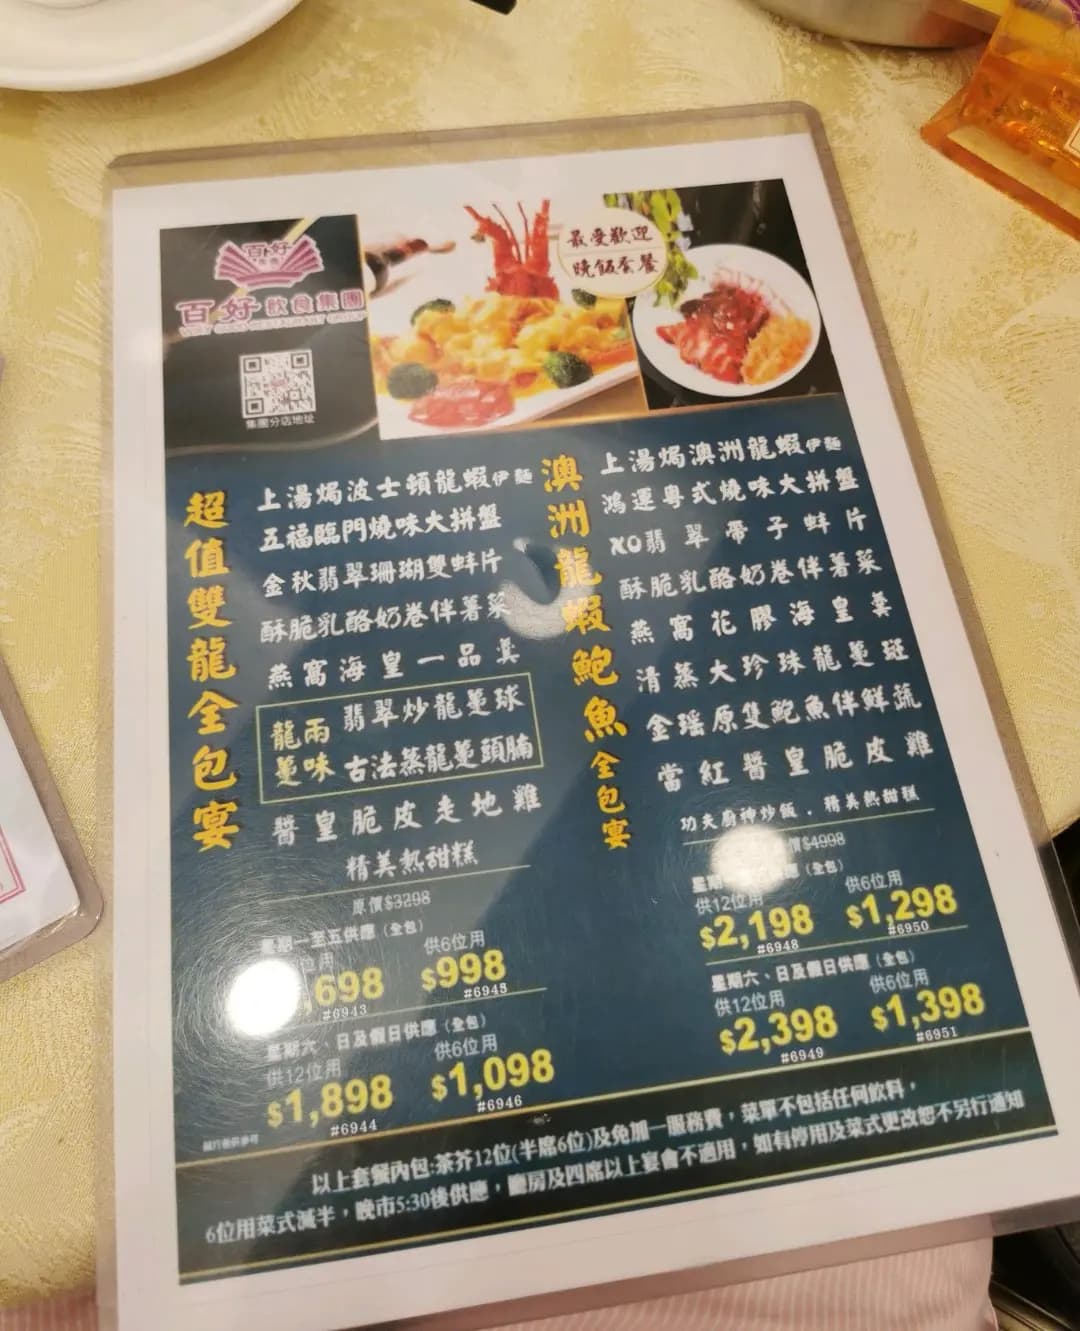 百好
百好飲食集團
集團分店地址
最受歡迎
晚飯套餐
超值雙龍全包宴
上湯焗波士頓龍蝦伊麵
五福臨門燒味大拼盤
金秋翡翠珊瑚雙蚌片
酥脆乳酪奶卷伴薯菜
燕窩海皇一品羹
龍躉兩味
翡翠炒龍躉球
古法蒸龍躉頭腩
醬皇脆皮走地雞
精美熱甜糕
原價$3298
星期一至五供應（全包）
位用
,698
#6943
供6位用
$998
#6945
星期六、日及假日供應（全包）
供12位用
$1,898
#6944
供6位用
$1,098
#6946
澳洲龍蝦鮑魚全包宴
上湯焗澳洲龍蝦伊麵
鴻運粵式燒味大拼盤
XO翡翠帶子蚌片
酥脆乳酪奶卷伴薯菜
燕窩花膠海皇羹
清蒸大珍珠龍躉斑
金瑤原隻鮑魚伴鮮蔬
當紅醬皇脆皮雞
功夫廚神炒飯．精美熱甜糕
價$4998
星期
供應（全包）
供12位用
$2,198
#6948
供6位用
$1,298
#6950
星期六、日及假日供應（全包）
供12位用
$2,398
#6949
供6位用
$1,398
#6951
以上套餐內包:茶芥12位(半席6位)及免加一服務費，菜單不包括任何飲料，
6位用菜式減半，晚市5:30後供應，廳房及四席以上宴會不適用，如有停用及菜式更改恕不另行通知